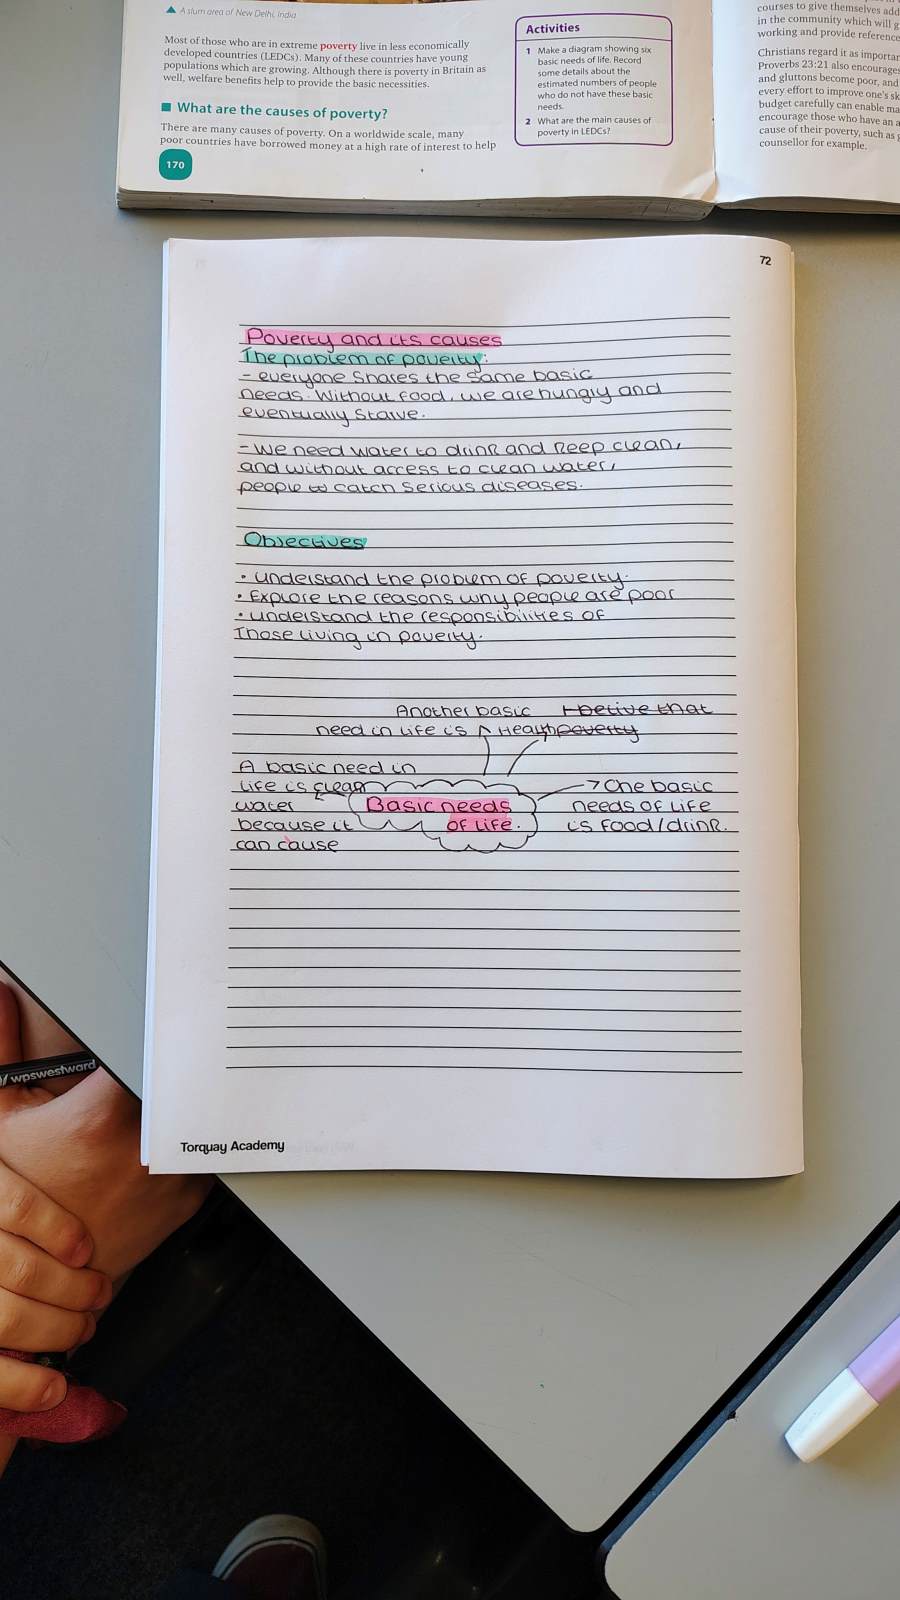 A slum area of New Delhi, India
Most of those who are in extreme poverty live in less economically
developed countries (LEDCs). Many of these countries have young
populations which are growing. Although there is poverty in Britain as
well, welfare benefits help to provide the basic necessities.
What are the causes of poverty?
There are many causes of poverty. On a worldwide scale, many
poor countries have borrowed money at a high rate of interest to help
170
Activities
1 Make a diagram showing six
basic needs of life. Record
some details about the
estimated numbers of people
who do not have these basic
needs.
2 What are the main causes of
poverty in LEDCs?
courses to give themselves
in the community which will
working and provide
Christians regard it as
Proverbs 23:21 also
and gluttons become poor, and
every effort to improve one's
budget carefully can enable
encourage those who have an
cause of their poverty, such as
counsellor for example.
72
Poverty and its causes
The problem of poverty:
- everyone Shares the Same basic
needs. Without food, we are hungry and
eventually Starve.
- We need water to drink and keep clean,
and without access to clean water,
people catch Serious diseases.
Objectives
• understand the problem of poverty.
• Explore the reasons why people are poor
• understand the responsibilities of
Those living in poverty.
Another basic I belive that
need in life is Health poverty
A basic need in
life is clean
water
because it
can cause
Basic needs
of life.
One basic
needs of life
is food/drink.
Torquay Academy
wpswestward